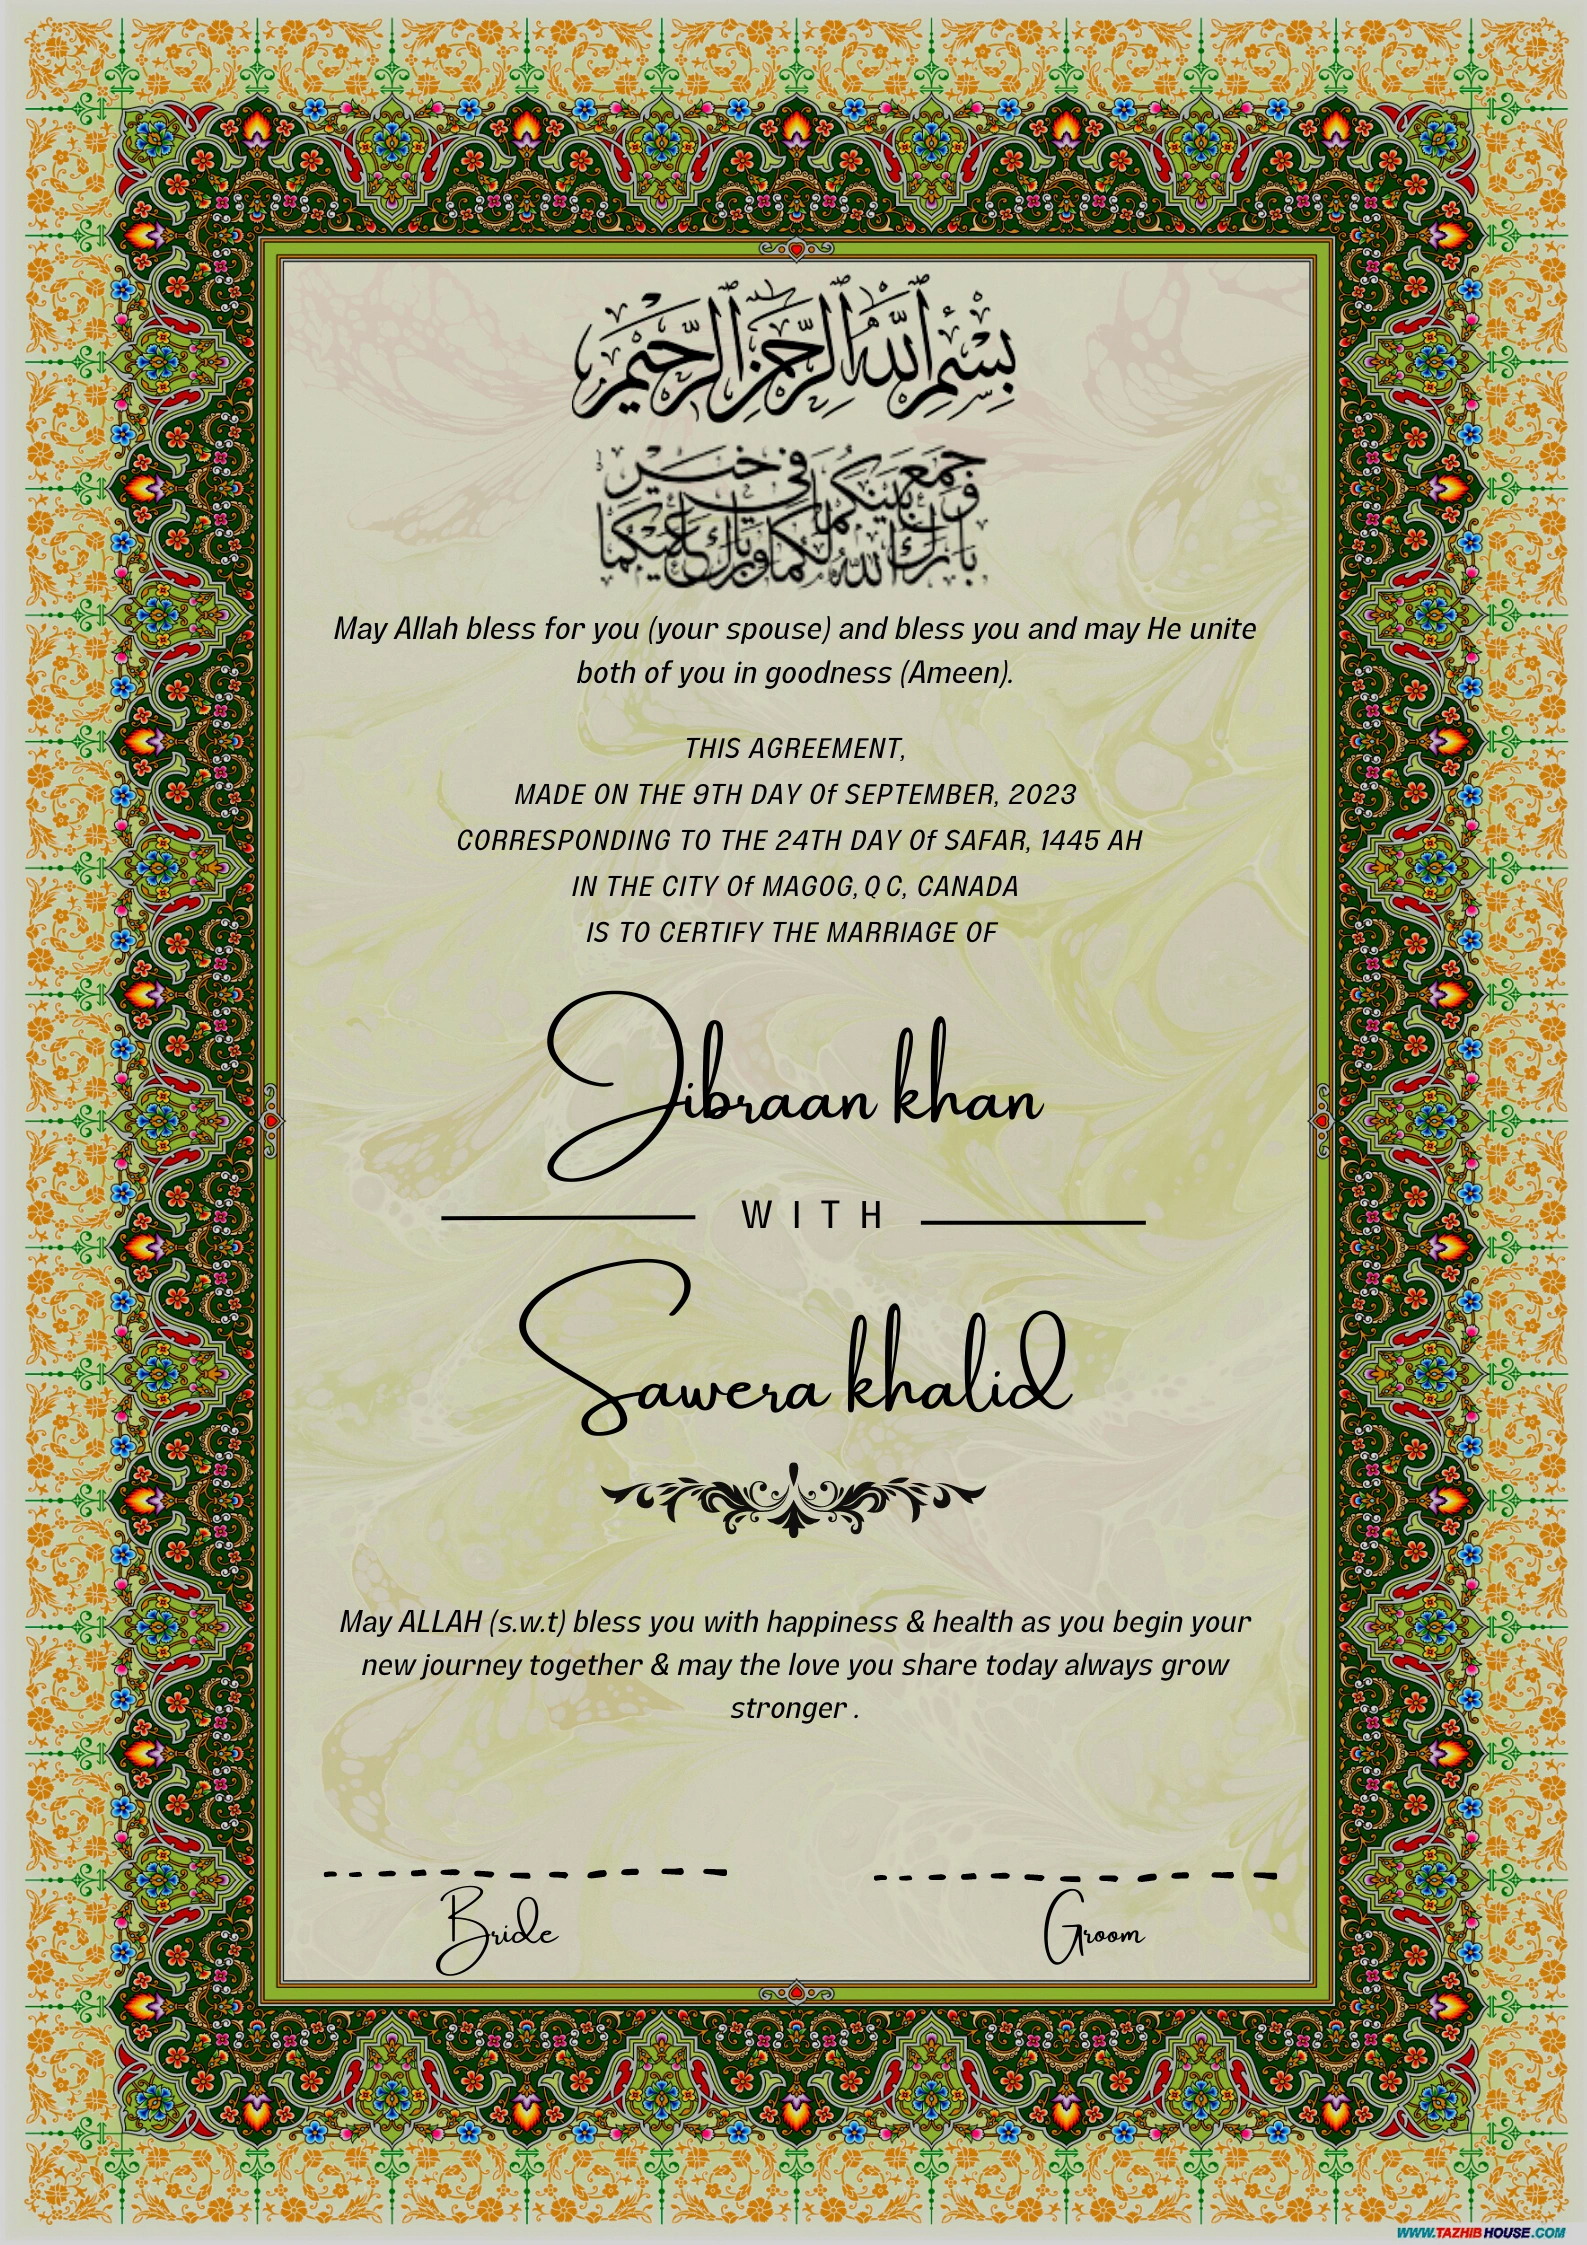 بِسْمِ ٱللَّهِ ٱلرَّحْمَٰنِ ٱلرَّحِيمِ
وجمع بينكما في خير
بارك الله لكما وبارك عليكما
May Allah bless for you (your spouse) and bless you and may He unite
both of you in goodness (Ameen).
THIS AGREEMENT,
MADE ON THE 9TH DAY Of SEPTEMBER, 2023
CORRESPONDING TO THE 24TH DAY Of SAFAR, 1445 AH
IN THE CITY Of MAGOG, Q C, CANADA
IS TO CERTIFY THE MARRIAGE OF
Jibraan khan
WITH
Sawera khalid
May ALLAH (s.w.t) bless you with happiness & health as you begin your
new journey together & may the love you share today always grow
stronger .
Bride
Groom
WWW.TAZHIBHOUSE.COM